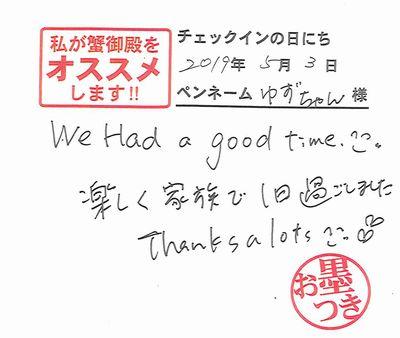 私が蟹御殿を
オススメ
します!!
チェックインの日にち
2019年 5月 3日
ペンネーム ゆずちゃん 様
We Had a good time.
楽しく家族で1日過ごしました
Thanks a lots
お墨つき